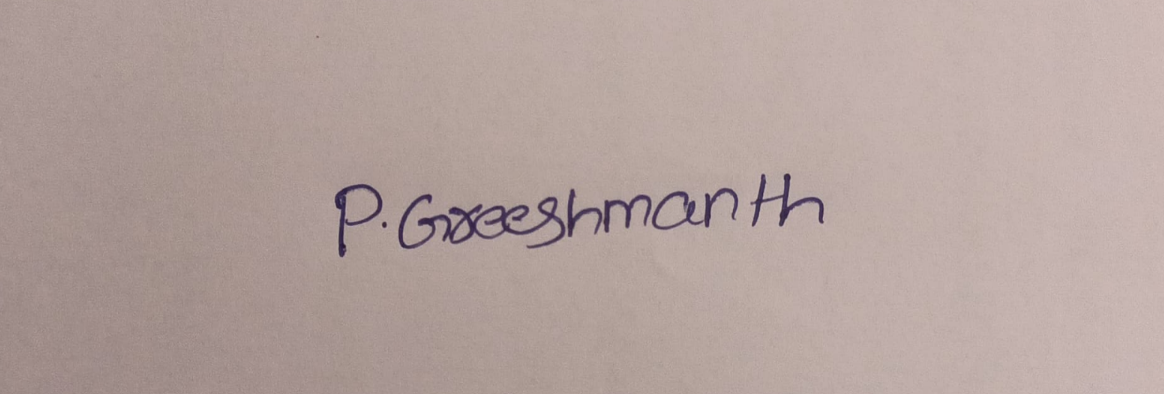 P. Greeshmanth